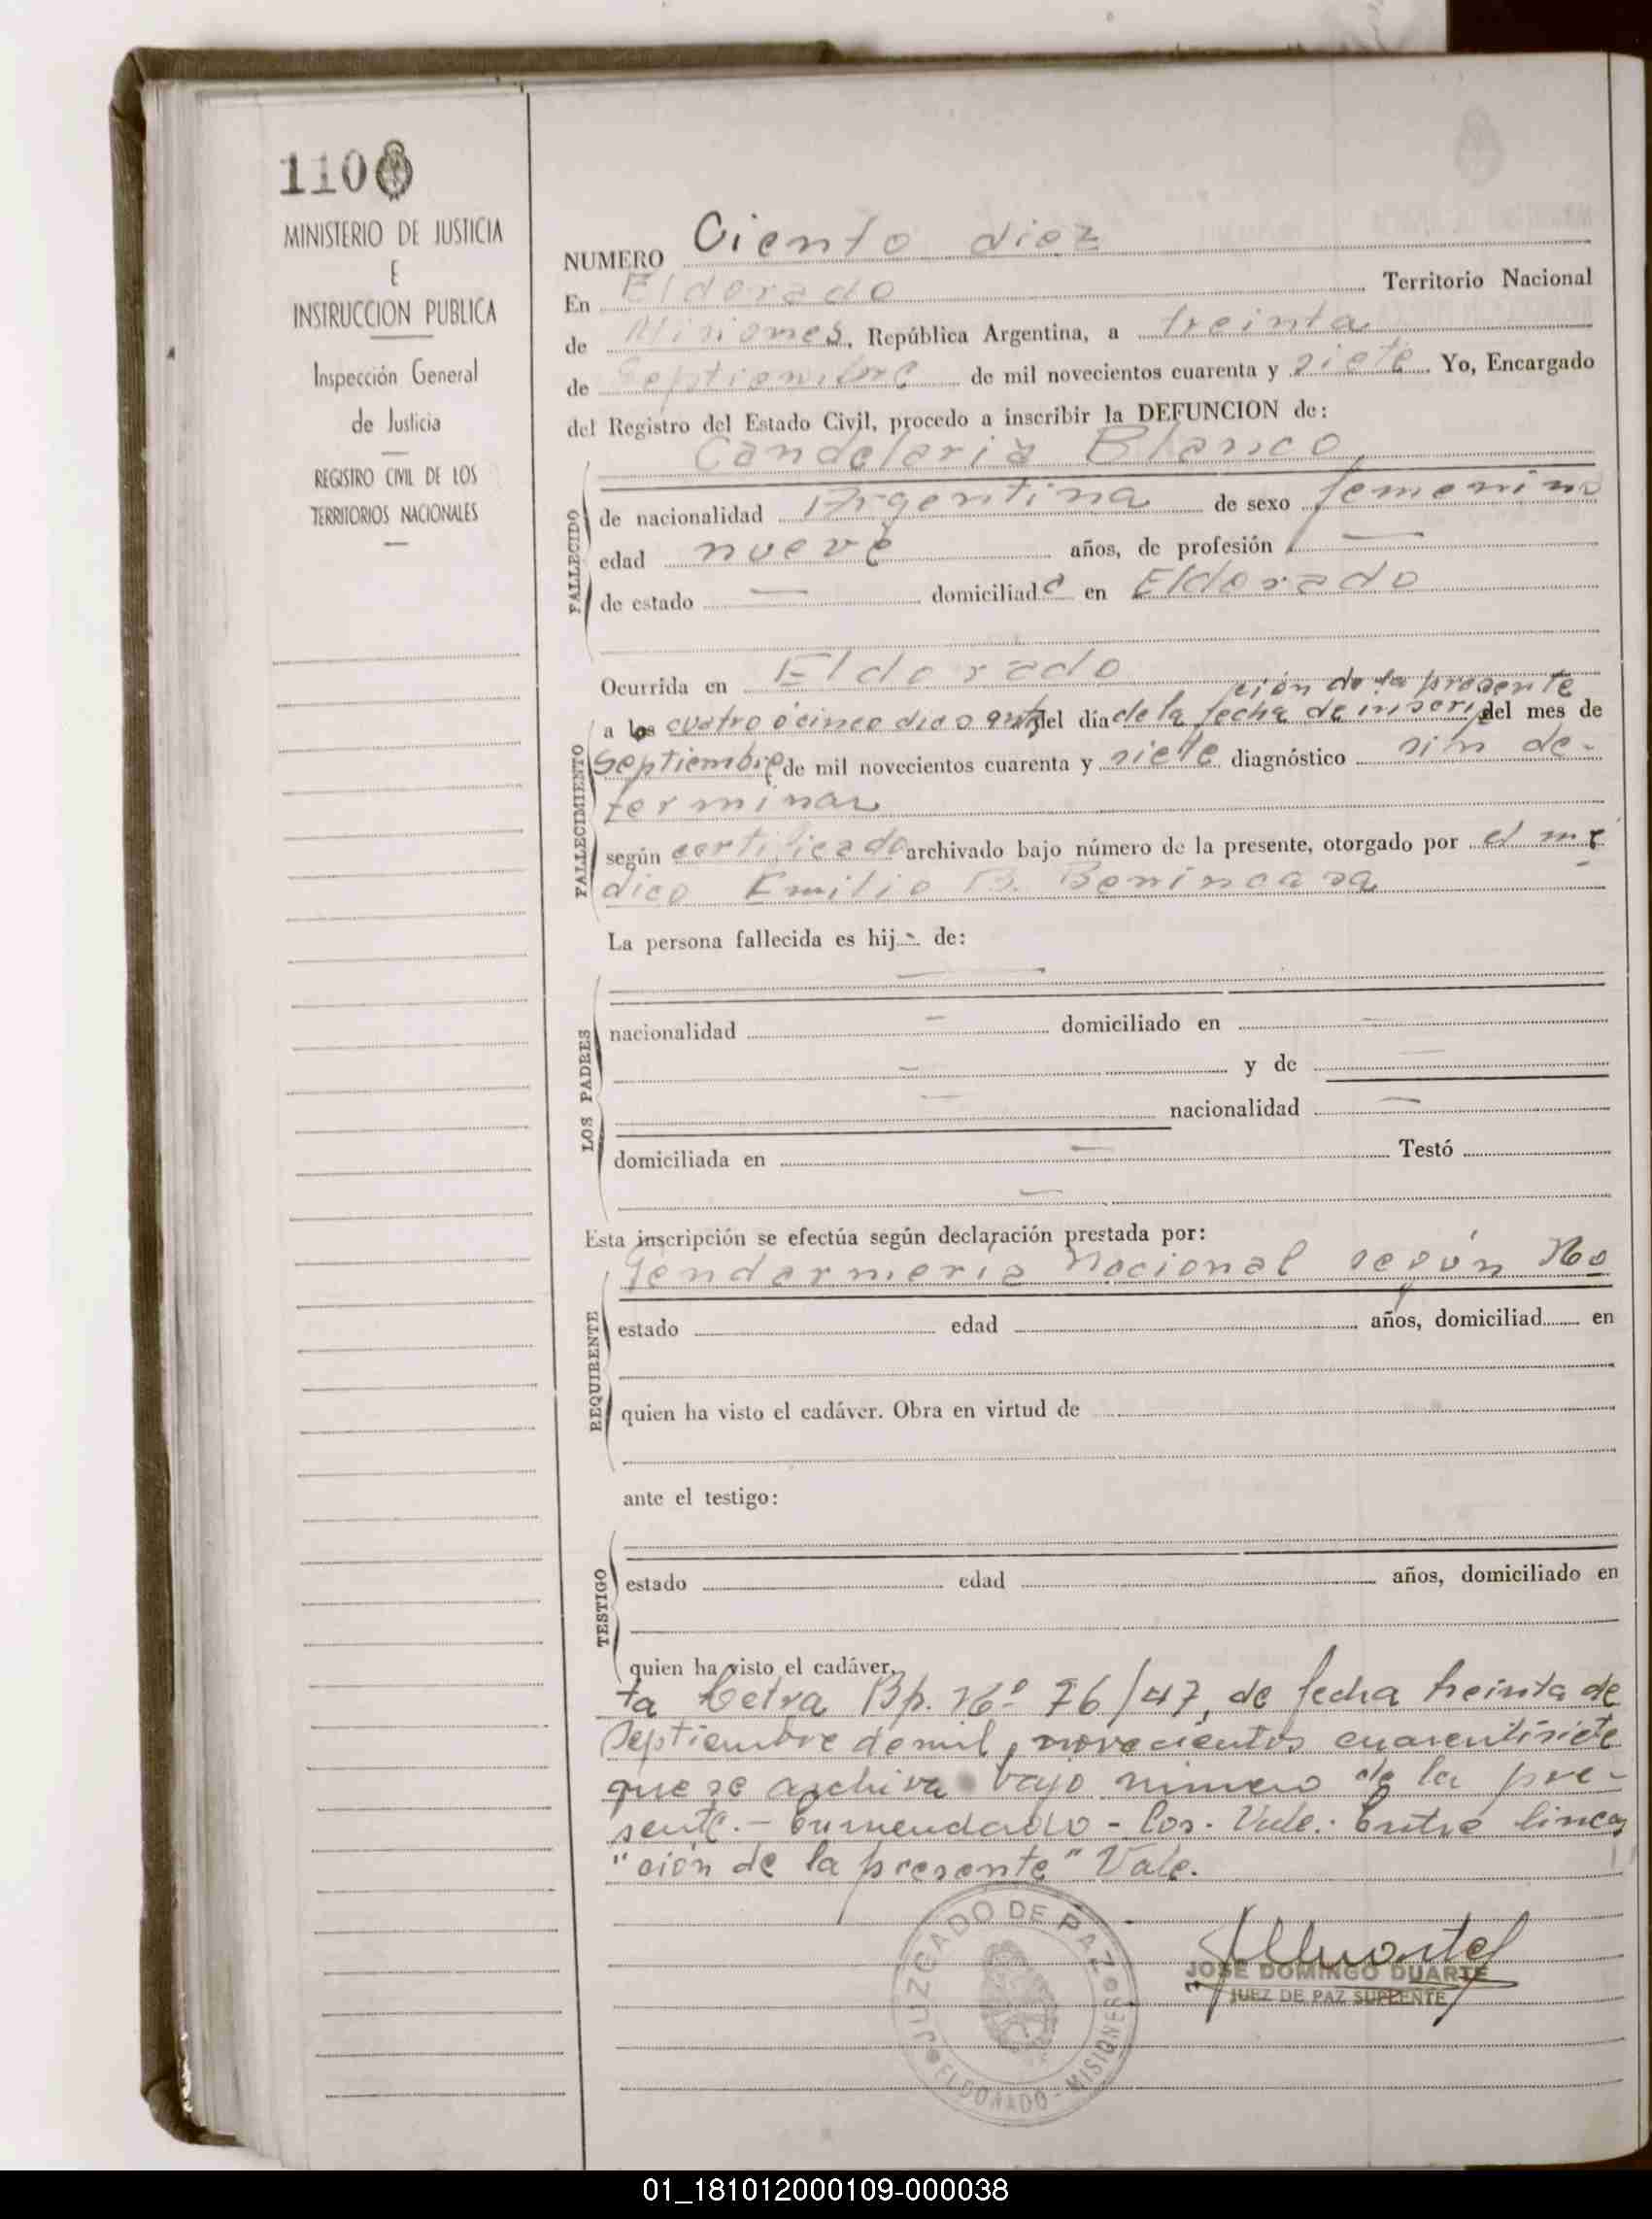 110
MINISTERIO DE JUSTICIA
E
INSTRUCCION PUBLICA
Inspección General
de Justicia
REGISTRO CIVIL DE LOS
TERRITORIOS NACIONALES
NUMERO Ciento diez
En Eldorado Territorio Nacional
de Misiones, República Argentina, a treinta
de Septiembre de mil novecientos cuarenta y siete. Yo, Encargado
del Registro del Estado Civil, procedo a inscribir la DEFUNCION de:
Candelaria Blanco
FALLECIDO
de nacionalidad Argentina de sexo femenino
edad nueve años, de profesión —
de estado — domiciliada en Eldorado
Ocurrida en Eldorado
ción de la presente
FALLECIMIENTO
a los cuatro ó cinco dias antes del día de la fecha de inscrip del mes de
Septiembre de mil novecientos cuarenta y siete diagnóstico sin de-
terminar
según certificado archivado bajo número de la presente, otorgado por el mé
dico Emilio B. Benincasa
La persona fallecida es hij - de:
—
LOS PADRES
nacionalidad — domiciliado en —
— y de —
— nacionalidad —
domiciliada en — Testó
—
Esta inscripción se efectúa según declaración prestada por:
Gendarmeria Nacional según No
REQUIRENTE
estado edad años, domiciliad en
quien ha visto el cadáver. Obra en virtud de
ante el testigo:
TESTIGO
estado edad años, domiciliado en
quien ha visto el cadáver.
ta Letra Bp. Nº 76/47, de fecha treinta de
Septiembre de mil, novecientos cuarentisiete
que se archiva bajo número de la pre-
sente.- Enmendado - los. Vale.: Entre lineas
"ción de la presente" Vale.
JUZGADO DE PAZ
ELDORADO - MISIONES
JOSE DOMINGO DUARTE
JUEZ DE PAZ SUPLENTE
01_181012000109-000038